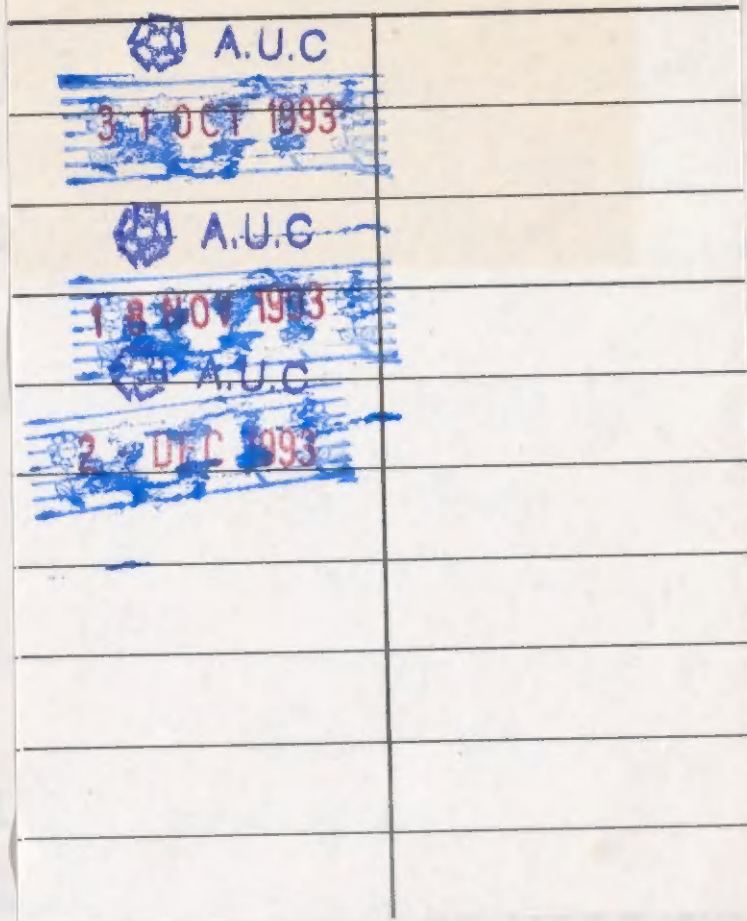 A.U.C
31 OCT 1993
A.U.C
18 NOV 1993
A.U.C
2 DEC 1993